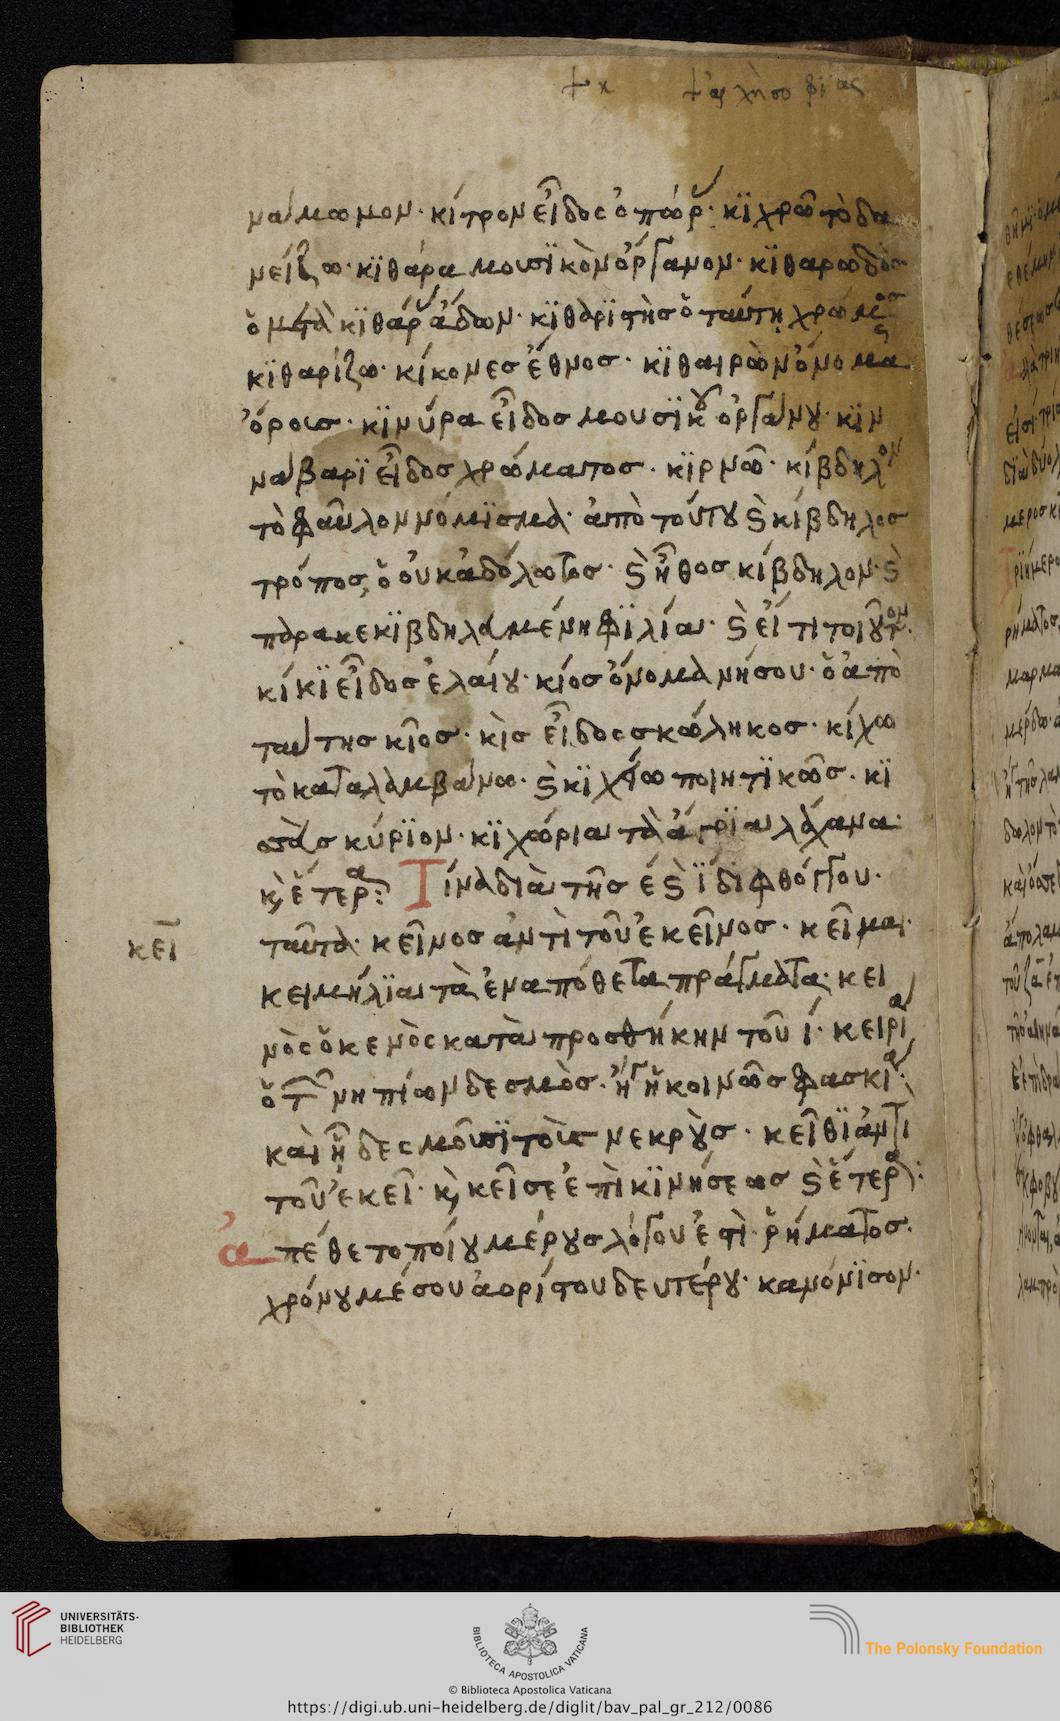 + κ + ἀρχὴ σοφίας
νάμωμον· κίτρον εἶδος ὀπώρου· κϊχρῶ τὸ δα
νείζω· κϊθάρα μουσϊκὸν ὄργανον· κϊθαρωδὸσ
ὁ μετὰ κϊθάρου ἄδων· κϊθαρϊστὴσ ὁ ταύτη χρώμενοσ
κϊθαρίζω· κίκονεσ ἔθνοσ· κϊθαιρὼν ὄνομα
ὄρουσ· κϊνύρα εἶδοσ μουσϊκοῦ ὀργάνου· κϊν
νάβαρϊ εἶδοσ χρώματοσ· κϊρνῶ· κίβδηλον
τὸ φαῦλον νόμϊσμα· ἀπὸ τούτου καὶ κίβδηλοσ
τρόπος, ὁ οὐκ ἀδόλωτος· καὶ ἦθοσ κίβδηλον· καὶ
παρακεκϊβδηλωμένη φϊλία· καὶ εἴ τι τοιοῦτον·
κίκϊ εἶδοσ ἐλαίου· κίοσ ὄνομα νήσου· ὁ ἀπὸ
ταύτησ κῖοσ· κὶσ εἶδος σκώληκοσ· κίχω
τὸ καταλαμβάνω· καὶ κϊχάω ποιητϊκῶσ· κϊ
στὰσ κύρϊον· κϊχώρια τὰ ἄγρϊα λάχανα·
κ, ἕτερα: Τίνα διὰ τῆσ έ καὶ ϊ διφθόγγου·
ταῦτα· κεῖνοσ ἀντὶ τοῦ ἐκεῖνοσ· κεῖμαι·
κεῖ
κειμήλϊα τὰ ἐναπόθετα πράγματα· κει
νὸς ὁ κενὸς κατὰ προσθήκην τοῦ ί· κειρία
ὁ τῶν νηπίων δεσμὸσ· ἤγουν ἡ κοινῶσ φασκία·
καὶ ἧ δεσμοῦσϊ τοὺσ νεκροὺσ· κεῖθϊ ἀντὶ
τοῦ ἐκεῖ· κ, κεῖσε ἐπὶ κϊνήσεωσ καὶ ἕτερα:
ἀπέθετο ποίου μέρουσ λόγου ἐστὶ· ῥήματοσ·
χρόνου μέσου ἀορίστου δευτέρου· κανόνϊσον·
UNIVERSITÄTS-
BIBLIOTHEK
HEIDELBERG
BIBLIOTECA APOSTOLICA VATICANA
The Polonsky Foundation
© Biblioteca Apostolica Vaticana
https://digi.ub.uni-heidelberg.de/diglit/bav_pal_gr_212/0086